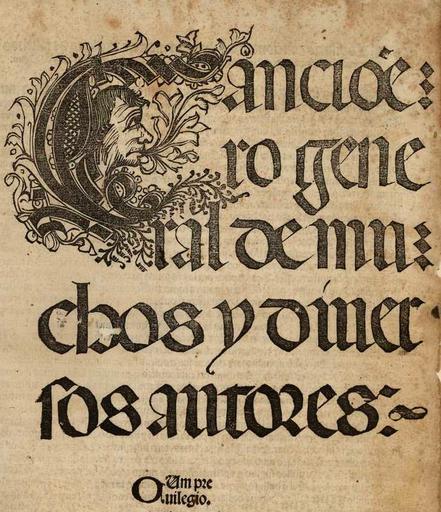 Canciõe:
ro gene
ral de mu:
chos y diuer
sos autores:~
Cum pre
uilegio.